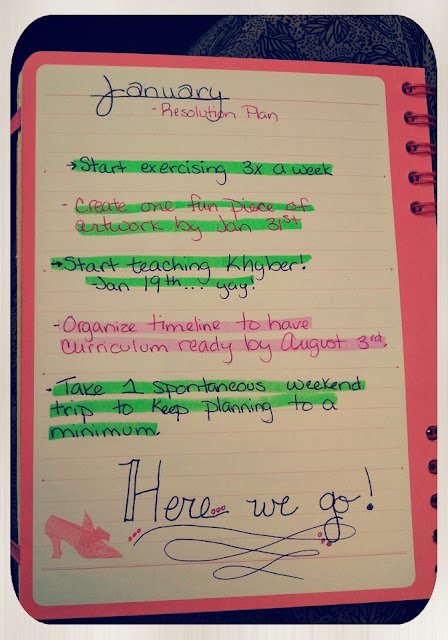 January
- Resolution Plan
→ Start exercising 3x a week
- Create one fun piece of
artwork by Jan 31st
→ Start teaching Khyber!
- Jan 19th... yay!
- Organize timeline to have
curriculum ready by August 3rd.
- Take 1 spontaneous weekend
trip to keep planning to a
minimum.
Here we go!